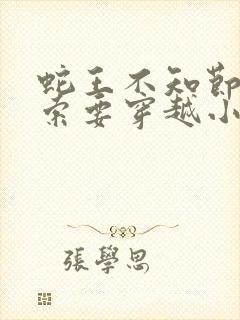 蛇王不知節
索要穿越小
張學思